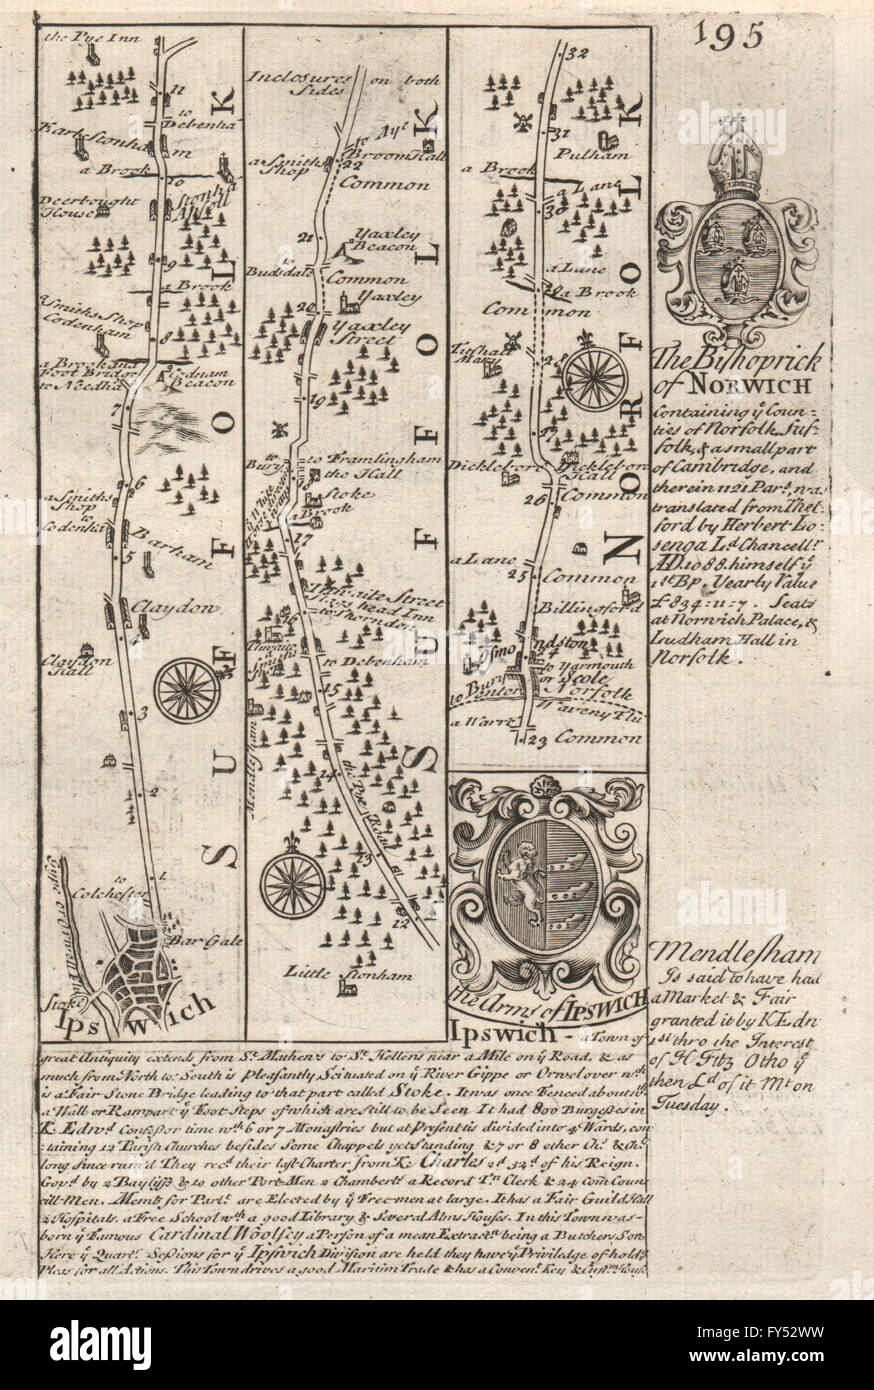 195
the Pye Inn
11
to
Debenhā
Karlestonhā
m
a Brook
10
Stonhā
Aspoll
Deerbought
House
9
a Brook
Smiths Shop
Codenham
8
a Brook and
Foot Bridge
to Needhā
Codnham
Beacon
7
6
a Smiths
Shop
to
Codenhā
5
Barham
Claydon
4
Claydon
Hall
3
2
1
to
Colchester
Bar Gate
Stoke
Ipswich
SUFFOLK
Inclosures on both
Sides
to Aye
Broom Hall
a Smiths
Shop
22
Common
21
Yaxley
Beacon
Common
20
Yaxley
Yaxley
Street
19
to
Bury
to Framlingham
the Hall
18
Stoke
a Brook
17
Thwaite Street
16
to Thorndon
to Debenham
15
Mendlesham
14
the Pye Road
13
12
Little Stonham
SUFFOLK
32
31
Pulham
a Brook
a Lane
30
a Lane
29
a Brook
Common
28
27
Dicklebore
Dicklebore
Hall
26
Common
a Lane
25
Common
Billingford
Osmondston
24
to Yarmouth
or Scole
to Bury
Norfolk
Waveny Flu
a Warrt
23 Common
NORFOLK
The Bishoprick
of NORWICH
Containing ye Coun=
ties of Norfolk, Suf=
folk, & a small part
of Cambridge, and
therein 1121 Pars. was
translated from Thet=
ford by Herbert Lo=
senga Ld. Chancellr.
AD. 1088. himself ye
1st Bp. Yearly Value
£834=11=7. Seats
at Norwich Palace, &
Ludham Hall in
Norfolk.
the Arms of IPSWICH
Mendlesham
Is said to have had
a Market & Fair
granted it by K Edw
1st thro the Interest
of H Fitz Otho ye
then Ld of it Mt on
Tuesday.
Ipswich - a Town of
great Antiquity extends from St. Mathew's to St. Hellens near a Mile on ye Road, & as
much from North to South is pleasantly Scituated on ye River Gippe or Orwel over wch
is a Fair Stone Bridge leading to that part called Stoke. It was once Fenced about wth
a Wall or Rampart ye Foot Steps of which are still to be Seen It had 800 Burgesses in
K. Edwd Confessor time wth 6 or 7 Monastries but at Present is divided into 4 Wards, con
taining 12 Parish Churches besides some Chappels yet standing & 7 or 8 other Chs. & Chs.
long since ruin'd They recd their last Charter from K. Charles 2d 32d of his Reign.
Govd by 2 Bayliffs & 10 other Port-Men 2 Chambers. a Record Tn Clerk & 24 Com Coun
cill-Men. Membs. for Parlt. are Elected by ye Free-men at large. It has a Fair Guild Hall
2 Hospitals, a Free School wth a good Library & Several Alms Houses. In this Town was
born ye Famous Cardinal Woolsey a Person of a mean Extractn being a Butchers Son
Here ye Quartr. Sessions for ye Ipswich Division are held they have ye Priviledge of holdg
Pleas for all Actions. This Town drives a good Maritim Trade & has a Convent. Key & Custm House
alamy
Image ID: FY52WW
www.alamy.com